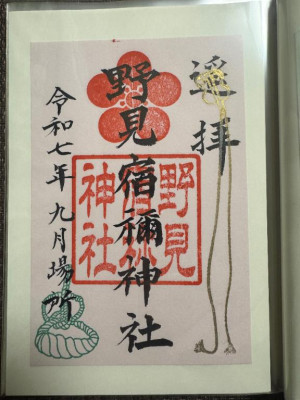 遥拝
野見宿禰神社
野見宿祢神社
令和七年九月場所